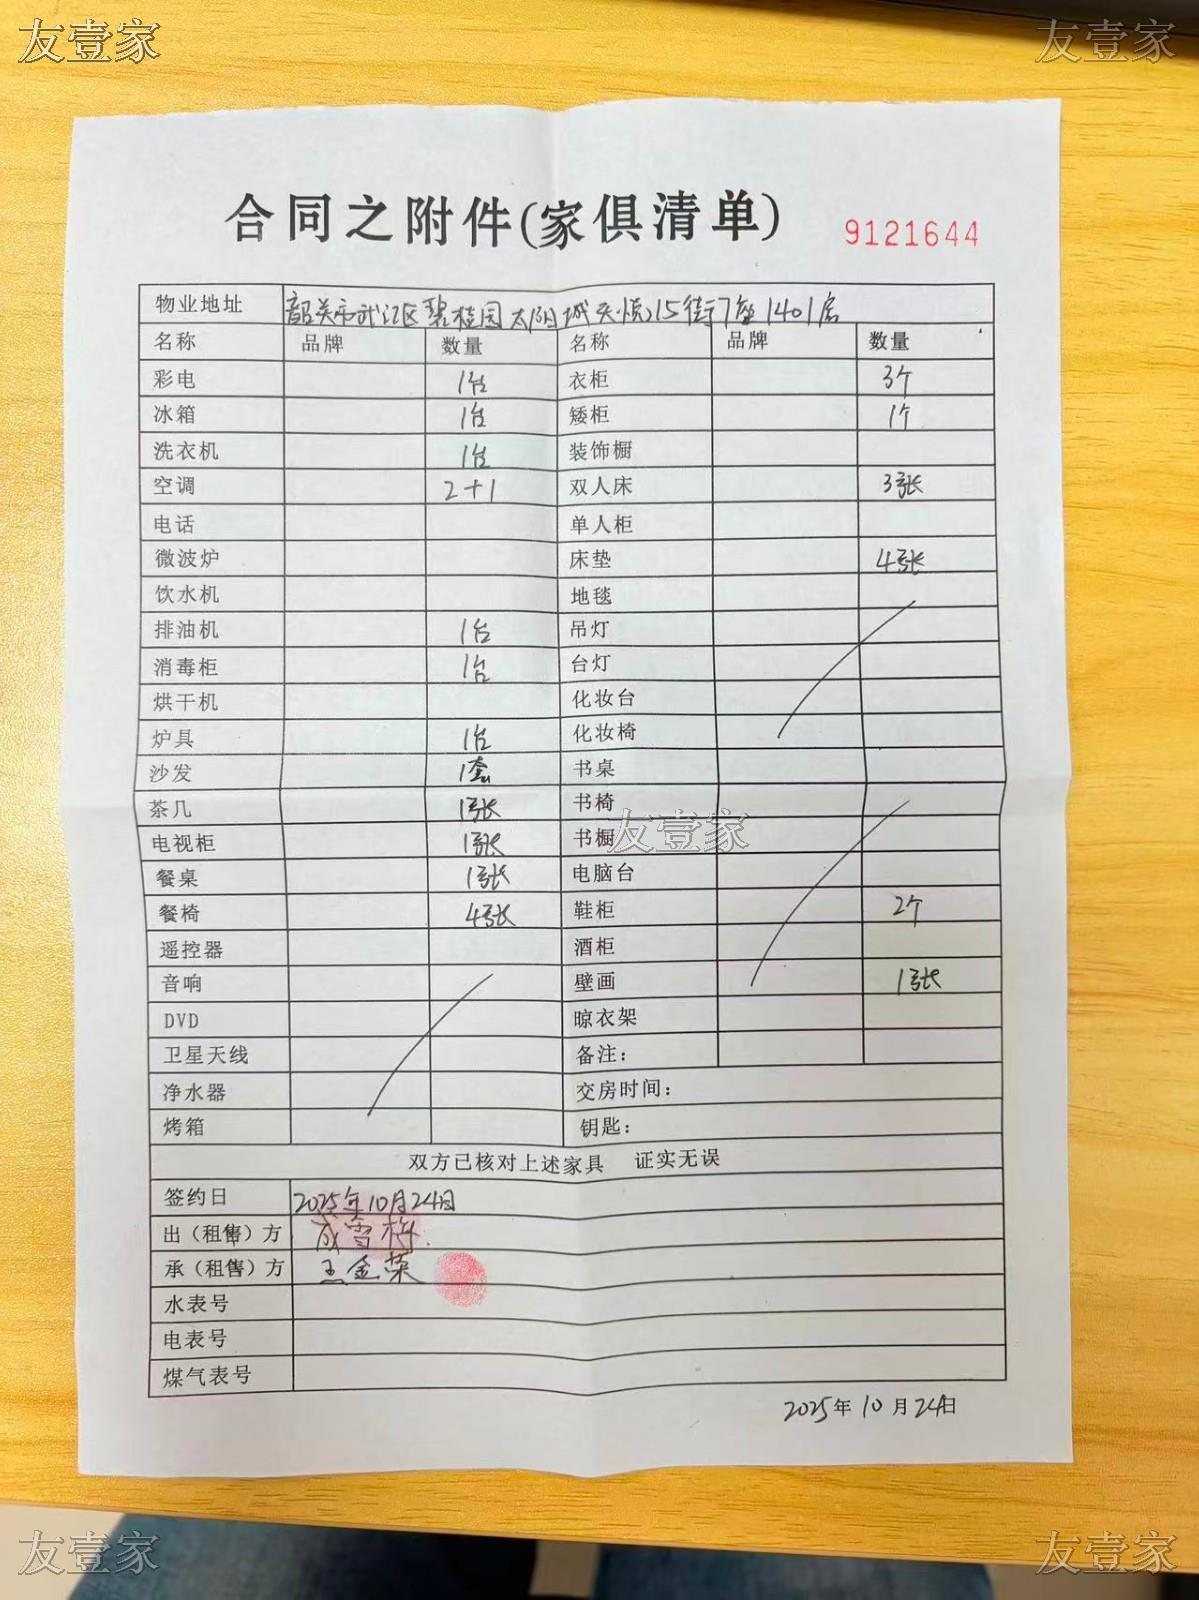 友壹家 友壹家
合同之附件(家俱清单) 9121644
物业地址 韶关市武江区碧桂园太阳城天悦15街7座1401房
名称 品牌 数量 名称 品牌 数量
彩电 1台 衣柜 3个
冰箱 1台 矮柜 1个
洗衣机 1台 装饰橱
空调 2+1 双人床 3张
电话 单人柜
微波炉 床垫 4张
饮水机 地毯
排油机 1台 吊灯
消毒柜 1台 台灯
烘干机 化妆台
炉具 1台 化妆椅
沙发 1套 书桌
茶几 1张 书椅
电视柜 1张 书橱 友壹家
餐桌 1张 电脑台
餐椅 4张 鞋柜 2个
遥控器 酒柜
音响 壁画 1张
DVD 晾衣架
卫星天线 备注：
净水器 交房时间：
烤箱 钥匙：
双方已核对上述家具 证实无误
签约日 2025年10月24日
出（租售）方 成雪梅
承（租售）方 王金荣
水表号
电表号
煤气表号
2025年10月24日
友壹家 友壹家